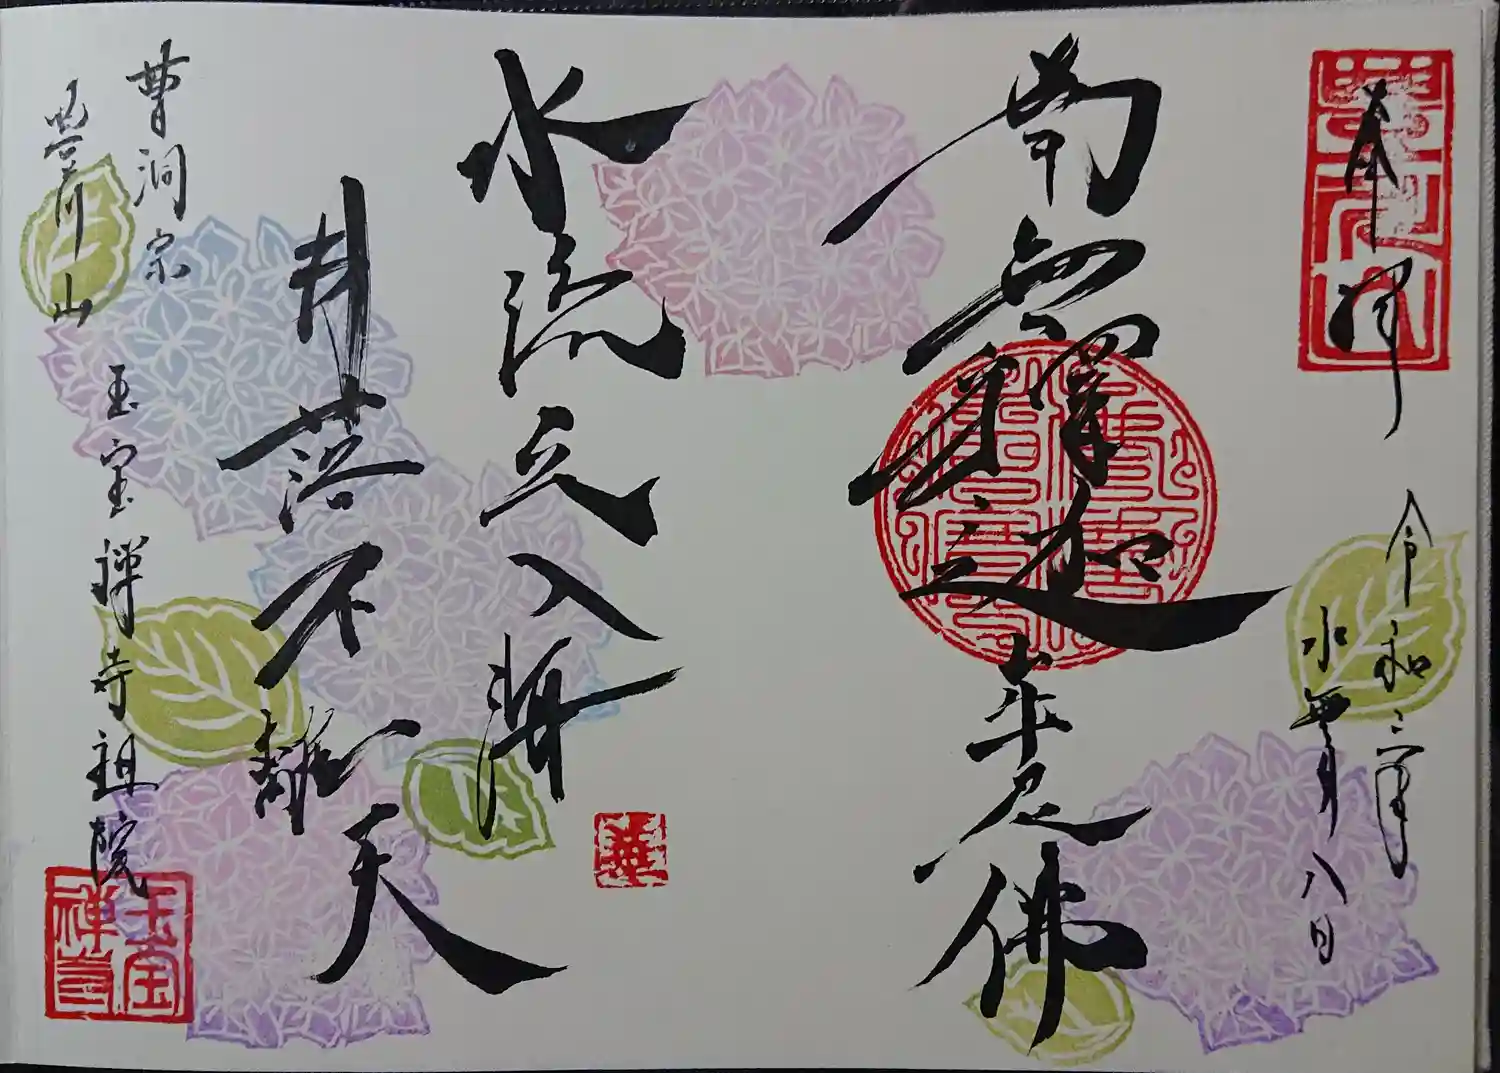 奉拝
令和三年
水無月八日
南無釋迦牟尼佛
水流元入海
月落不離天
曹洞宗
川山
玉 禅寺祖院
華